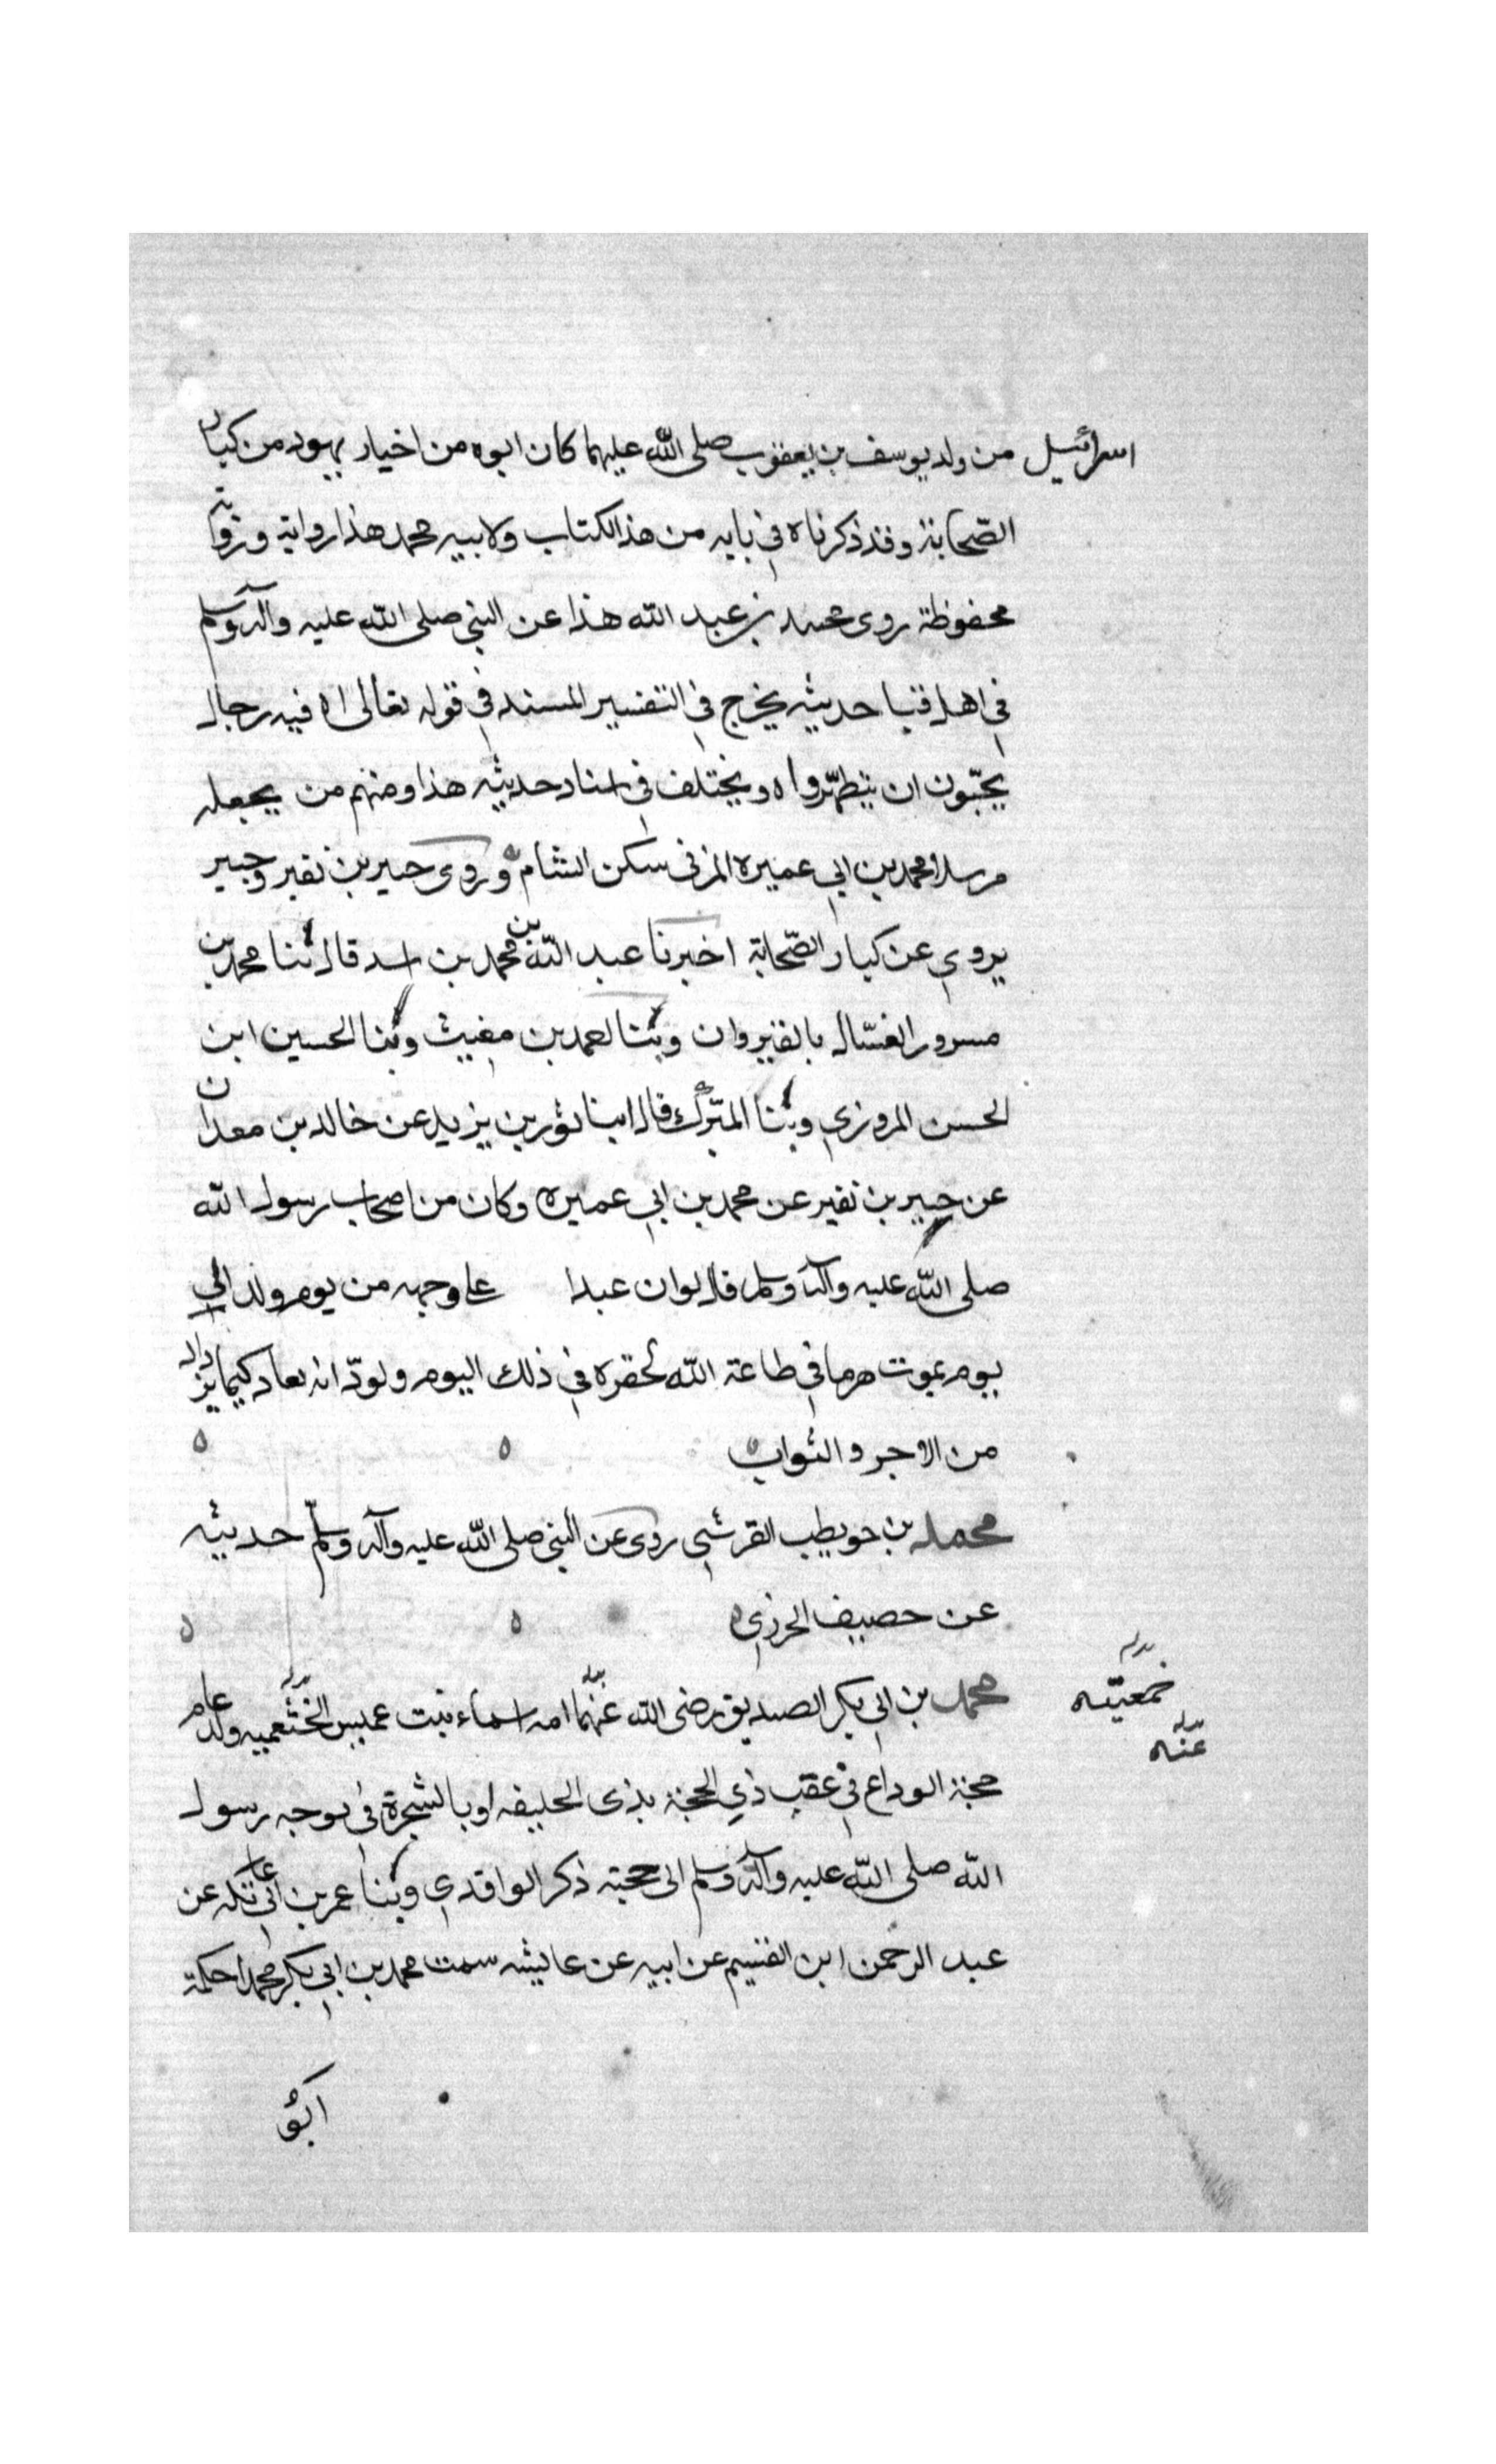 اسرائيل من ولد يوسف بن يعقوب صلى الله عليهما كان ابوه من اخيار يهود من كبار
الصّحابة وقد ذكرناه في بابه من هذا الكتاب ولابيه محمد هذا رواية وروآية
محفوظة روى محمد بن عبد الله هذا عن النبي صلى الله عليه وآله وسلم
في اهل قبا حديثه يخرج في التفسير المسند في قوله تعالى ٥ فيه رجال
يحبّون ان يتطهّروا ٥ ويختلف في اسناد حديثه هذا ومنهم من يجعله
مرسلا محمد بن ابي عميره المزني سكن الشام ٥ وروى جبير بن نفير وجبير
يروي عن كبار الصّحابة اخبرنا عبد الله بن محمد بن اسد قال ثنا محمد بن
مسرور الغسّال بالقيروان وثنا احمد بن مغيث وثنا الحسين ابن
الحسن المروزي وثنا المبرّك قال ابنا ثور بن يزيد عن خالد بن معدان
عن جبير بن نفير عن محمد بن ابي عميره وكان من اصحاب رسول الله
صلى الله عليه وآله وسلم قال لوان عبدا على وجهه من يوم ولد الي
يوم يموت هرما في طاعة الله لحقره في ذلك اليوم ولودّ انه يعاد كيما يزداد
من الاجر والثواب ٥ ٥ ٥
محمد بن حويطب القرشي روى عن النبي صلى الله عليه وآله وسلّم حديثه
عن حصيف الجزري ٥ ٥ ٥
محمد بن ابي بكر الصديق رضى الله عنهما امه اسماء بنت عميس الخثعميه ولد عام
حجة الوداع في عقب ذي الحجة بذى الحليفه او بالشجرة في توجه رسول
الله صلى الله عليه وآله وسلم الى حجته ذكر الواقدي وثنا عمر بن ابي عاتكه عن
عبد الرحمن ابن القسيم عن ابيه عن عايشه سمت محمد بن ابي بكر محمدا حكمة
عنه